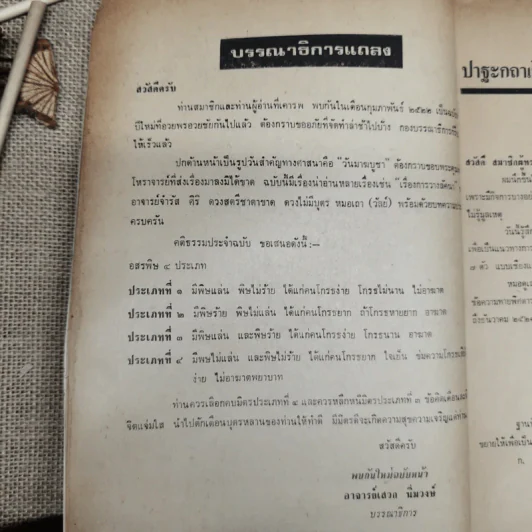 บรรณาธิการแถลง
สวัสดีครับ
ท่านสมาชิกและท่านผู้อ่านที่เคารพ พบกันในเดือนกุมภาพันธ์ ๒๕๒๒ เป็น
ปีใหม่ที่อวยพรอวยชัยกันไปแล้ว ต้องกราบขออภัยที่จัดทำล่าช้าไปบ้าง กองบรรณาธิการ
ให้เร็วแล้ว
ปกด้านหน้าเป็นรูปวันสำคัญทางศาสนาคือ "วันมาฆบูชา" ต้องกราบขอบพระคุณ
โหราจารย์ที่ส่งเรื่องมาลงมิได้ขาด ฉบับนี้มีเรื่องน่าอ่านหลายเรื่องเช่น
อาจารย์จำรัส ศิริ ดวงสตรีชาตาขาด ดวงไม่มีบุตร หมอเถา (วัลย์) พร้อมด้วยบทความ
ครบครัน
คติธรรมประจำฉบับ ขอเสนอดังนี้:—
อสรพิษ ๔ ประเภท
ประเภทที่ ๑ มีพิษแล่น พิษไม่ร้าย ได้แก่คนโกรธง่าย โกรธไม่นาน ไม่อาฆาต
ประเภทที่ ๒ มีพิษร้าย พิษไม่แล่น ได้แก่คนโกรธยาก ถ้าโกรธหายยาก อาฆาต
ประเภทที่ ๓ มีพิษแล่น และพิษร้าย ได้แก่คนโกรธง่าย โกรธนาน อาฆาต
ประเภทที่ ๔ มีพิษไม่แล่น และพิษไม่ร้าย ได้แก่คนโกรธยาก ใจเย็น ข่มความโกรธ
ง่าย ไม่อาฆาตพยาบาท
ท่านควรเลือกคบมิตรประเภทที่ ๔ และควรหลีกหนีมิตรประเภทที่ ๓ ข้อคิดเตือน
จิตแจ่มใส นำไปตักเตือนบุตรหลานของท่านให้ทำดี มีมิตรดีจะเกิดความสุขความเจริญ
สวัสดีครับ
พบกันใหม่ฉบับหน้า
อาจารย์เสวล นิ่มวงษ์
บรรณาธิการ
ปาฐะกถา
สวัสดี
เพราะมีกิจการบาง
ไม่รู้มูลเหตุ
เพื่อเป็นแนวทางการ
๓ ตัว
ถึงธันวาคม
ขยายให้เพื่อเป็น
ก.